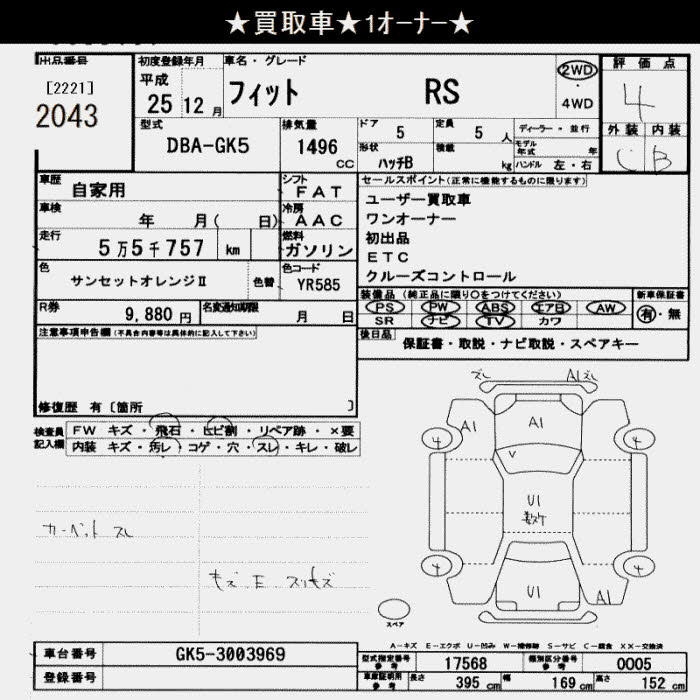 ★買取車★1オーナー★
出品番号
[2221]
2043
初度登録年月
平成
25 12 月
車名・グレード
フィット RS
2WD
・
4WD
評価点
4
外装 内装
C B
型式
DBA-GK5
排気量
1496
CC
ドア 5
定員 5 人
形状 ハッチB
積載 kg
ディーラー・並行
モデル年式 年
ハンドル 左・右
車歴
自家用
シフト
FAT
車検
年 月( 日)
冷房
AAC
走行
5万5千757 km
燃料
ガソリン
色
サンセットオレンジⅡ
色替
色コード
YR585
R券
9,880 円
名変通知期限
月 日
セールスポイント(正常に機能するものに限ります)
ユーザー買取車
ワンオーナー
初出品
ETC
クルーズコントロール
装備品 (純正品に限り○をつけてください)
PS PW ABS エアB AW
SR ナビ TV カワ
新車保証書
有・無
後日品
保証書・取説・ナビ取説・スペアキー
注意事項申告欄(不具合内容等は具体的に記入して下さい)
修復歴 有〔箇所 〕
検査員
記入欄
FW キズ・飛石・ヒビ割・リペア跡・×要
内装 キズ・汚レ・コゲ・穴・スレ・キレ・破レ
カーペット スレ
キズ E スリキズ
ズレ A1ズレ
A1 A1
4 4
V
U1
数ケ
4 4
U1 A1
スペア
A-キズ E-エクボ U-凹み W-補修跡 S-サビ C-腐食 XX-交換済
車台番号
GK5-3003969
登録番号
型式指定番号
参考
17568
類別区分番号
参考
0005
車庫証明用
参考
長さ 395 cm
幅 169 cm
高さ 152 cm